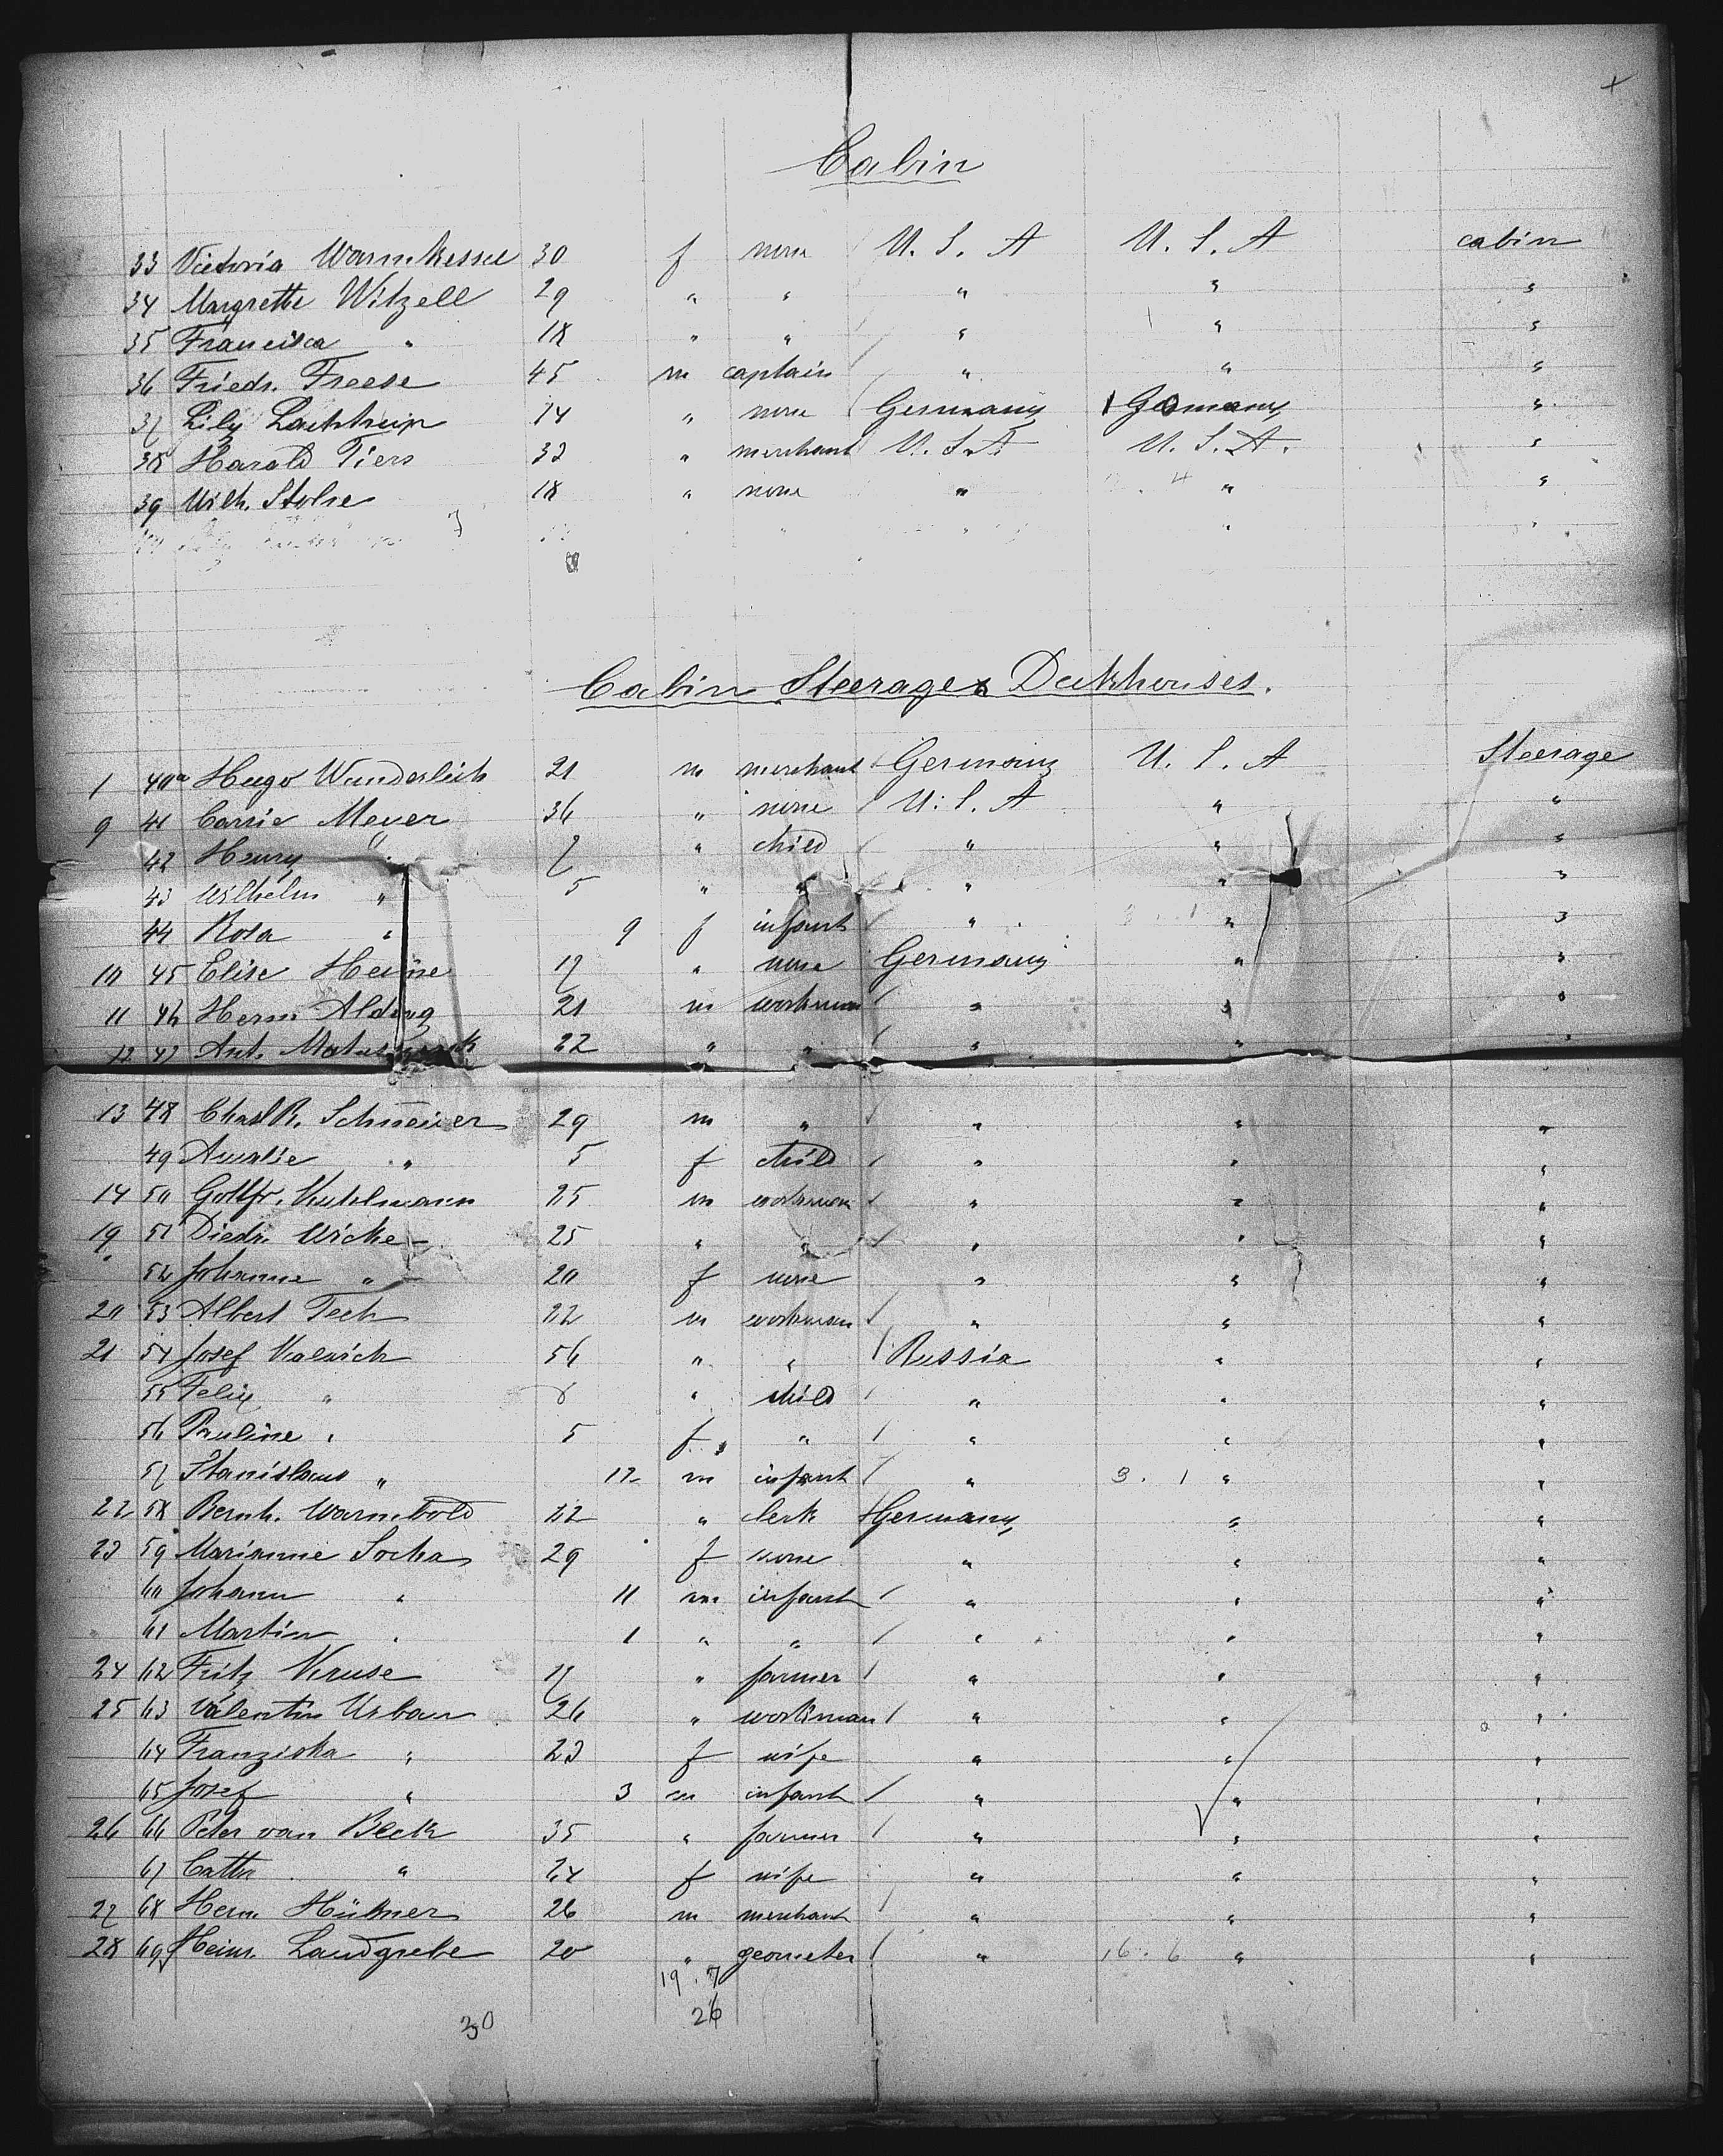 Cabin
33 Victoria Warmkessel 30 f none U. S. A U. S. A cabin
34 Margrethe Witzell 29 " " " " "
35 Francisca " 18 " " " " "
36 Friedr. Freese 45 m captain " " "
37 Lily 14 " none Germany Germany "
38 Harald Tiers 32 " merchant U. S. A U. S. A. "
39 Wilh. Stolse 18 " none " " "
Cabin Steerage & Deckhouses.
1 40a Hugo Wunderlich 21 m merchant Germany U. S. A Steerage
9 41 Carrie Meyer 36 " none U. S. A " "
42 Henry " 7 " child " " "
43 Wilhelm " 5 " " " " "
44 Rosa " 9 f infant " " "
10 45 Elise Heine 17 " none Germany " "
11 46 Herm. 21 m workman " " "
12 47 Ant. 22 " " " " "
13 48 Schneider 29 m " " " "
49 Amalie " 5 f child " " "
14 50 Gottfr. Kuhlmann 25 m workman " " "
19 51 Diedr. Wicke 25 " " " " "
52 Johanne " 20 f none " " "
20 53 Albert Tech 22 m workman " " "
21 54 Josef 56 " " Russia " "
55 Felix " 8 " child " " "
56 Pauline " 5 f " " " "
57 Stanislaus " 12 m infant " 3. 1 " "
22 58 Bernh. Warmbold 22 " clerk Germany " "
23 59 Marianne Socha 29 f none " " "
60 Johann " 11 m infant " " "
61 Martin " 1 " " " " "
24 62 Fritz Kruse 17 " farmer " " "
25 63 Valentin Urban 26 " workman " " "
64 Franziska " 23 f wife " " "
65 Josef " 3 m infant " " "
26 66 Peter van Beck 35 " farmer " " "
67 Cathr. " 24 f wife " " "
27 68 Herm. Hüttner 26 m merchant " " "
28 69 Heinr. Landgrebe 20 " geometer " 16. 6 " "
19. 7
30 26